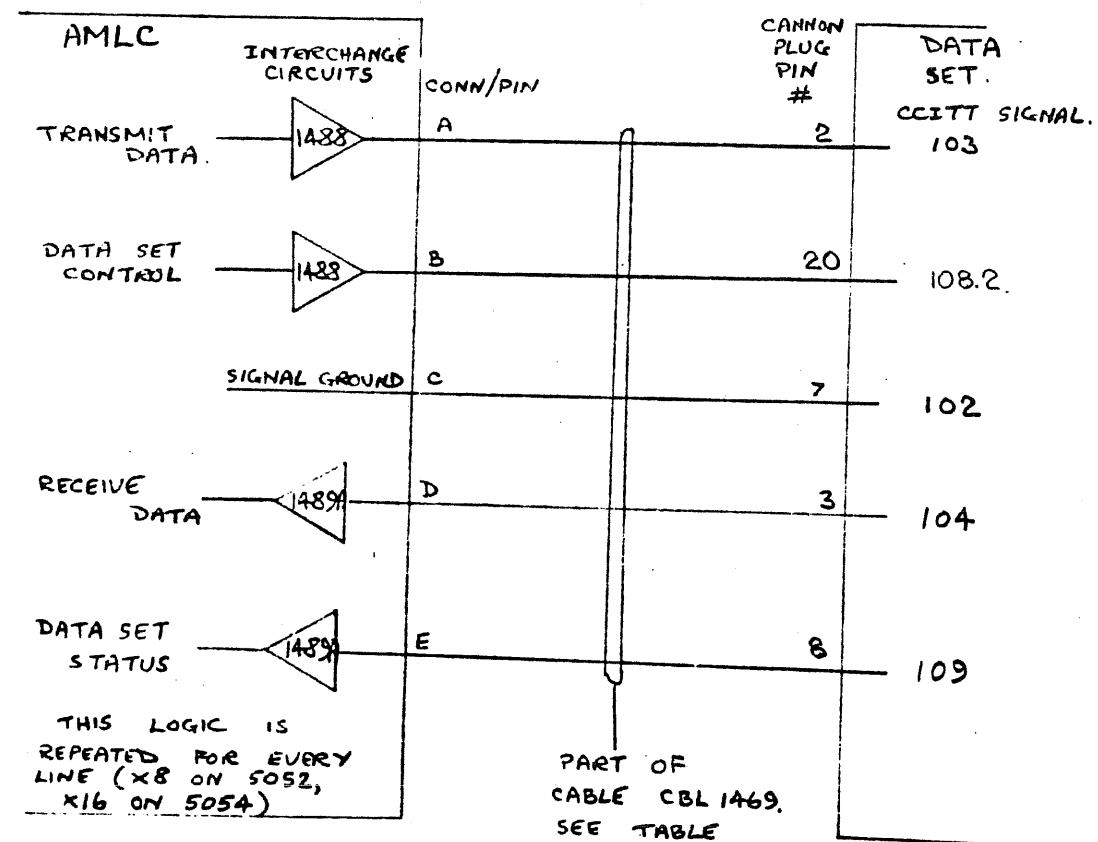 AMLC
INTERCHANGE
CIRCUITS
CONN/PIN
CANNON
PLUG
PIN
#
DATA
SET.
CCITT SIGNAL.
TRANSMIT
DATA.
1488
A
2
103
DATA SET
CONTROL
1488
B
20
108.2.
SIGNAL GROUND
C
7
102
RECEIVE
DATA
1489A
D
3
104
DATA SET
STATUS
1489A
E
8
109
THIS LOGIC IS
REPEATED FOR EVERY
LINE (x8 ON 5052,
x16 ON 5054)
PART OF
CABLE CBL 1469.
SEE TABLE